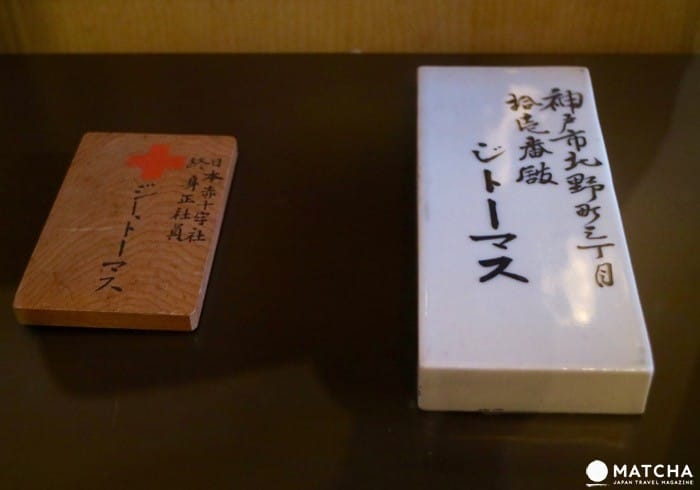 日本赤十字社
終身正社員
ジー、トーマス
神戸市北野町三丁目
拾壱番
ジトーマス
MATCHA
JAPAN TRAVEL MAGAZINE